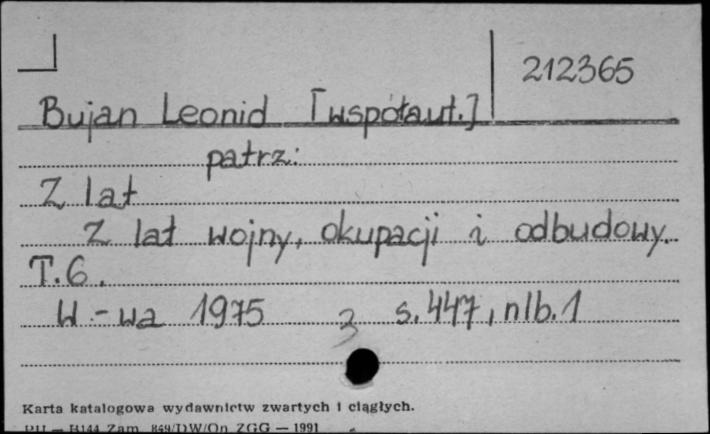 212365
Bujan Leonid [współaut.]
patrz:
Z lat
Z lat wojny, okupacji i odbudowy.
T.6.
W-wa 1975 3 s.447, nlb.1
Karta katalogowa wydawnictw zwartych i ciągłych.
PU — H144 Zam. 849/DW/On ZGG — 1991